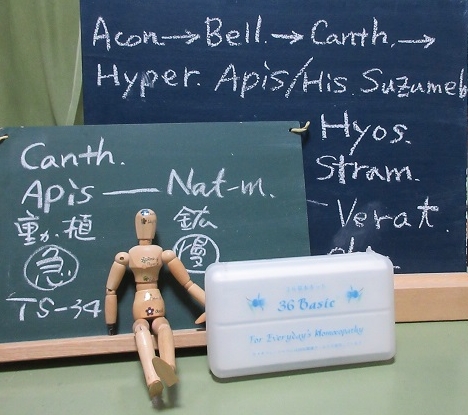 Acon→Bell.→Canth.→
Hyper. Apis/His. Suzumeb
Hyos.
Stram.
Verat.
Canth.
Apis — Nat-m.
動.植 鉱
急 慢
TS-34
36 Basic
For Everyday's Homoeopathy